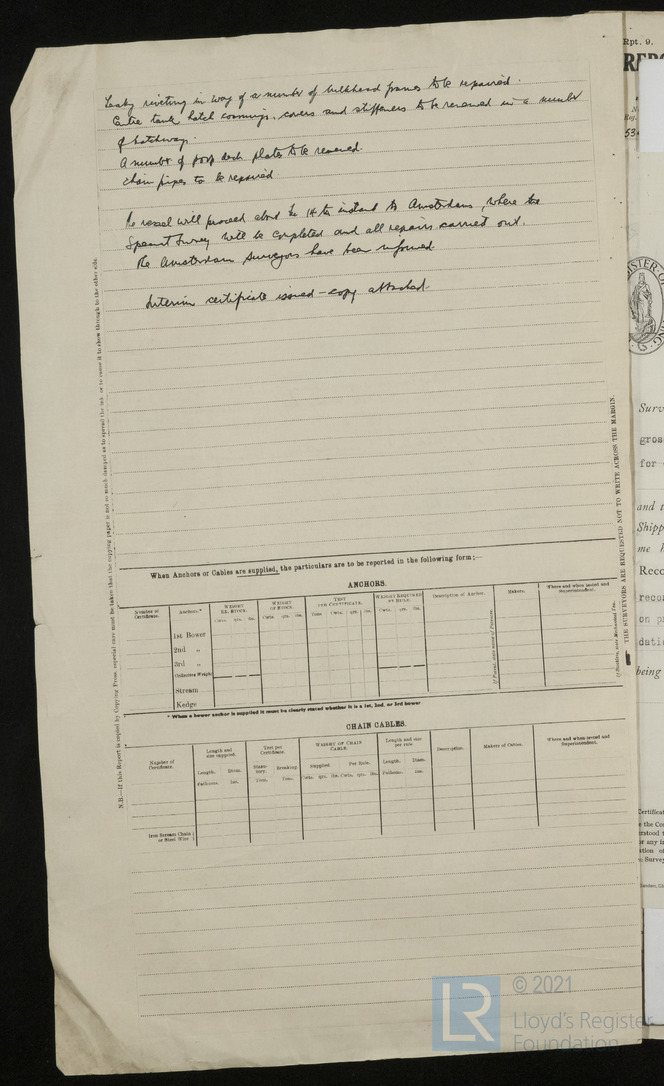 Leaky riveting in way of a number of bulkhead frames to be repaired.
Entire tank hatch coamings, covers and stiffeners to be renewed in a number
of hatchways.
A number of poop deck plates to be renewed.
Chain pipes to be repaired
The vessel will proceed about the 14th instant to Amsterdam, where the
Special Survey will be completed and all repairs carried out.
The Amsterdam Surveyors have been informed.
Interim certificate issued - copy attached.
N.B.—If this Report is copied by Copying Press, especial care must be taken that the copying paper is not so much damped as to spread the ink, or to cause it to show through to the other side.
THE SURVEYORS ARE REQUESTED NOT TO WRITE ACROSS THE MARGIN.
When Anchors or Cables are supplied, the particulars are to be reported in the following form:—
ANCHORS.
Number of Certificate. Anchors.* WEIGHT EX. STOCK. WEIGHT OF STOCK. TEST PER CERTIFICATE. WEIGHT REQUIRED BY RULE. Description of Anchor. Makers. Where and when tested and Superintendent.
Cwts. qrs. lbs. Cwts. qrs. lbs. Tons Cwts. qrs. lbs. Cwts. qrs. lbs.
1st Bower
2nd „
3rd „
Collective Weight
Stream
Kedge
* When a bower anchor is supplied it must be clearly stated whether it is a 1st, 2nd, or 3rd bower
CHAIN CABLES.
Number of Certificate. Length and size supplied. Test per Certificate. WEIGHT OF CHAIN CABLE Length and size per rule Description. Makers of Cables. Where and when tested and Superintendent.
Length. Diam. Statutory. Breaking. Supplied. Per Rule. Length. Diam.
Fathoms. Ins. Tons. Tons. Cwts. qrs. lbs. Cwts. qrs. lbs. Fathoms. Ins.
Iron Stream Chain or Steel Wire
Rpt. 9.
Surv
gros
for
and t
Shipp
me
Reco
recor
on p
dati
being
Certificat
e the Co
rstood t
or any i
ation of
Survey
LR
© 2021
Lloyd's Register
Foundation